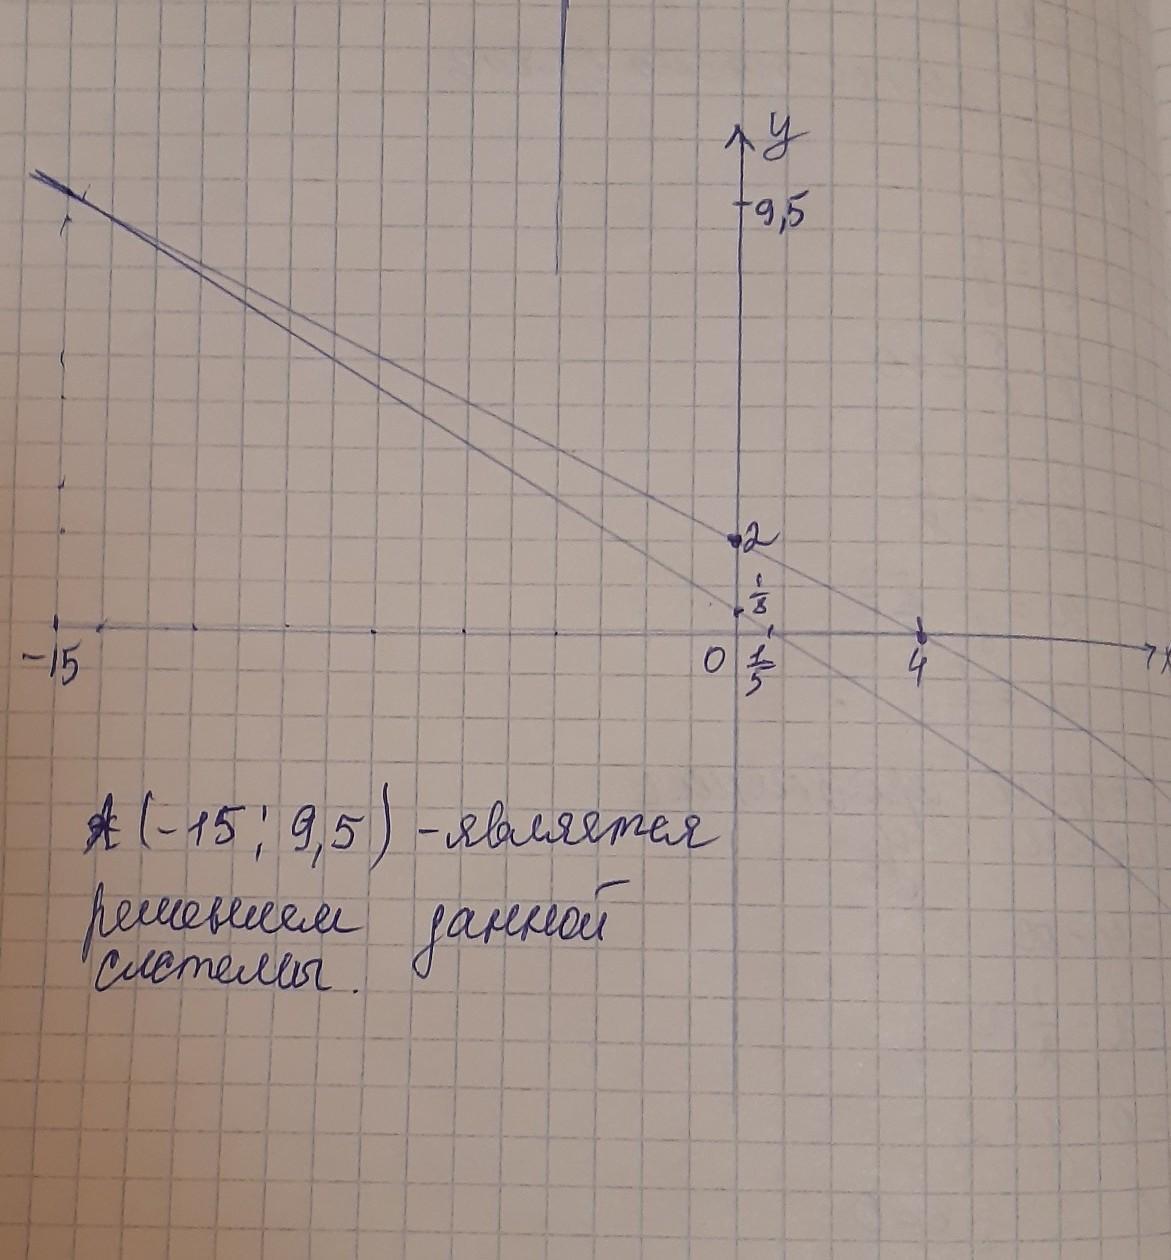 y
9,5
2
1/8
-15 0 1/5 4 x
A (-15; 9,5) - является
решением данной
системы.